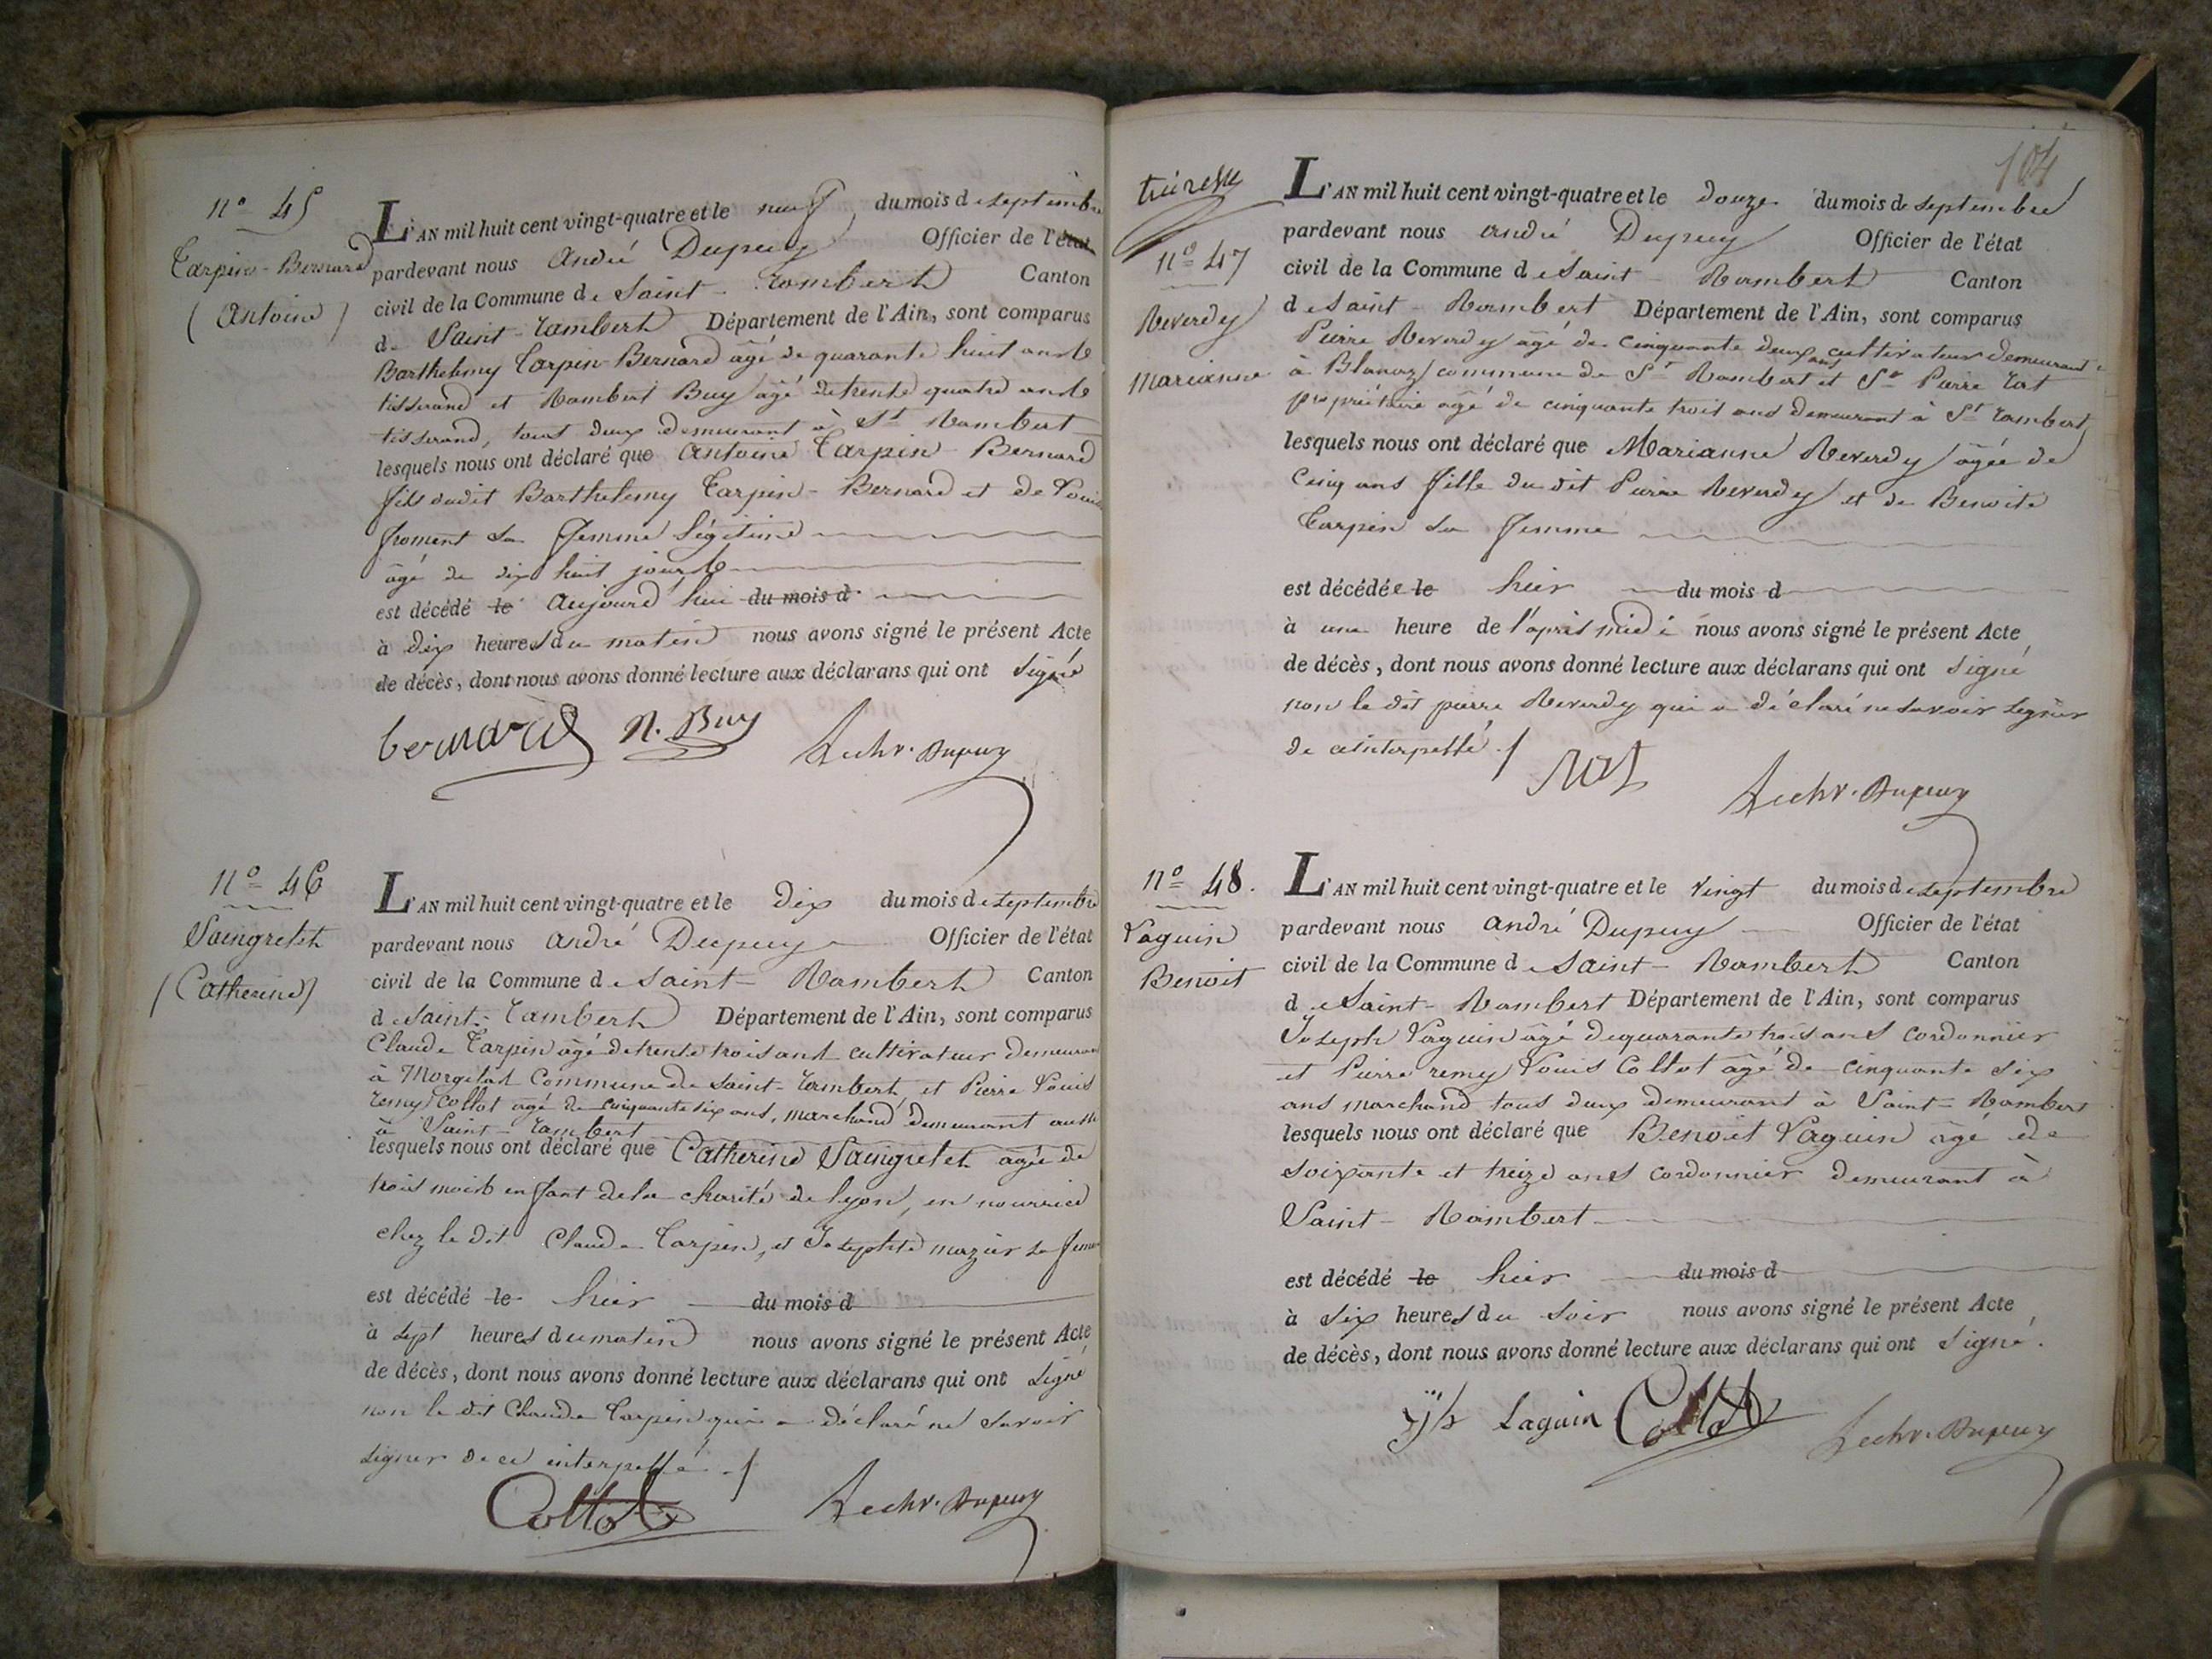 n° 45
Carpin-Bernard
(Antoine)
L'AN mil huit cent vingt-quatre et le neuf du mois de septembre
pardevant nous André Dupuy Officier de l'état
civil de la Commune de Saint-Rambert Canton
de Saint-Rambert Département de l'Ain, sont comparus
Barthelemy Carpin-Bernard âgé de quarante huit ans
tisserand et Rambert Buy âgé de trente quatre ans
tisserand, tous deux demeurant à St Rambert
lesquels nous ont déclaré que Antoine Carpin-Bernard
fils dudit Barthelemy Carpin-Bernard et de Louise
froment sa femme légitime
âgé de dix huit jours
est décédé le aujourd'hui du mois d
à dix heures du matin nous avons signé le présent Acte
de décès, dont nous avons donné lecture aux déclarans qui ont signé
bernard R. Buy Dupuy
n° 46
(Catherine)
L'AN mil huit cent vingt-quatre et le dix du mois de septembre
pardevant nous André Dupuy Officier de l'état
civil de la Commune de Saint-Rambert Canton
de Saint-Rambert Département de l'Ain, sont comparus
Claude Carpin âgé de trente trois ans cultivateur demeurant
à Morgelas Commune de Saint-Rambert et Pierre Louis
remy Collot âgé de cinquante six ans, marchand demeurant aussi
à Saint-Rambert
lesquels nous ont déclaré que Catherine âgée de
trois mois enfant de la charité de lyon, en nourrice
chez le dit Claude Carpin, et Josephte mazuir sa femme
est décédé le hier du mois d
à sept heures du matin nous avons signé le présent Acte
de décès, dont nous avons donné lecture aux déclarans qui ont signé
non le dit Claude Carpin qui a déclaré ne savoir
signer de ce interpellé
Collot Dupuy
104
n° 47
Reverdy
Marianne
L'AN mil huit cent vingt-quatre et le douze du mois de septembre
pardevant nous andré Dupuy Officier de l'état
civil de la Commune de Saint-Rambert Canton
de Saint-Rambert Département de l'Ain, sont comparus
Pierre Reverdy âgé de cinquante deux ans cultivateur demeurant
à Blanaz commune de St Rambert et Sr Pierre Rat
propriétaire âgé de cinquante trois ans demeurant à St Rambert
lesquels nous ont déclaré que Marianne Reverdy âgée de
Cinq ans fille du dit Pierre Reverdy et de Benoite
Carpin sa femme
est décédée le hier du mois d
à une heure de l'après midi nous avons signé le présent Acte
de décès, dont nous avons donné lecture aux déclarans qui ont signé
non le dit pierre Reverdy qui a déclaré ne savoir signer
de ce interpellé
Rat Dupuy
n° 48.
Vaguin
Benoit
L'AN mil huit cent vingt-quatre et le vingt du mois de septembre
pardevant nous andré Dupuy Officier de l'état
civil de la Commune de Saint-Rambert Canton
de Saint-Rambert Département de l'Ain, sont comparus
Joseph Vaguin âgé de quarante trois ans cordonnier
et Pierre remy Louis Collot âgé de cinquante six
ans marchand tous deux demeurant à Saint-Rambert
lesquels nous ont déclaré que Benoit Vaguin âgé de
soixante et treize ans cordonnier demeurant à
Saint-Rambert
est décédé le hier du mois d
à six heures du soir nous avons signé le présent Acte
de décès, dont nous avons donné lecture aux déclarans qui ont signé.
Collot Dupuy